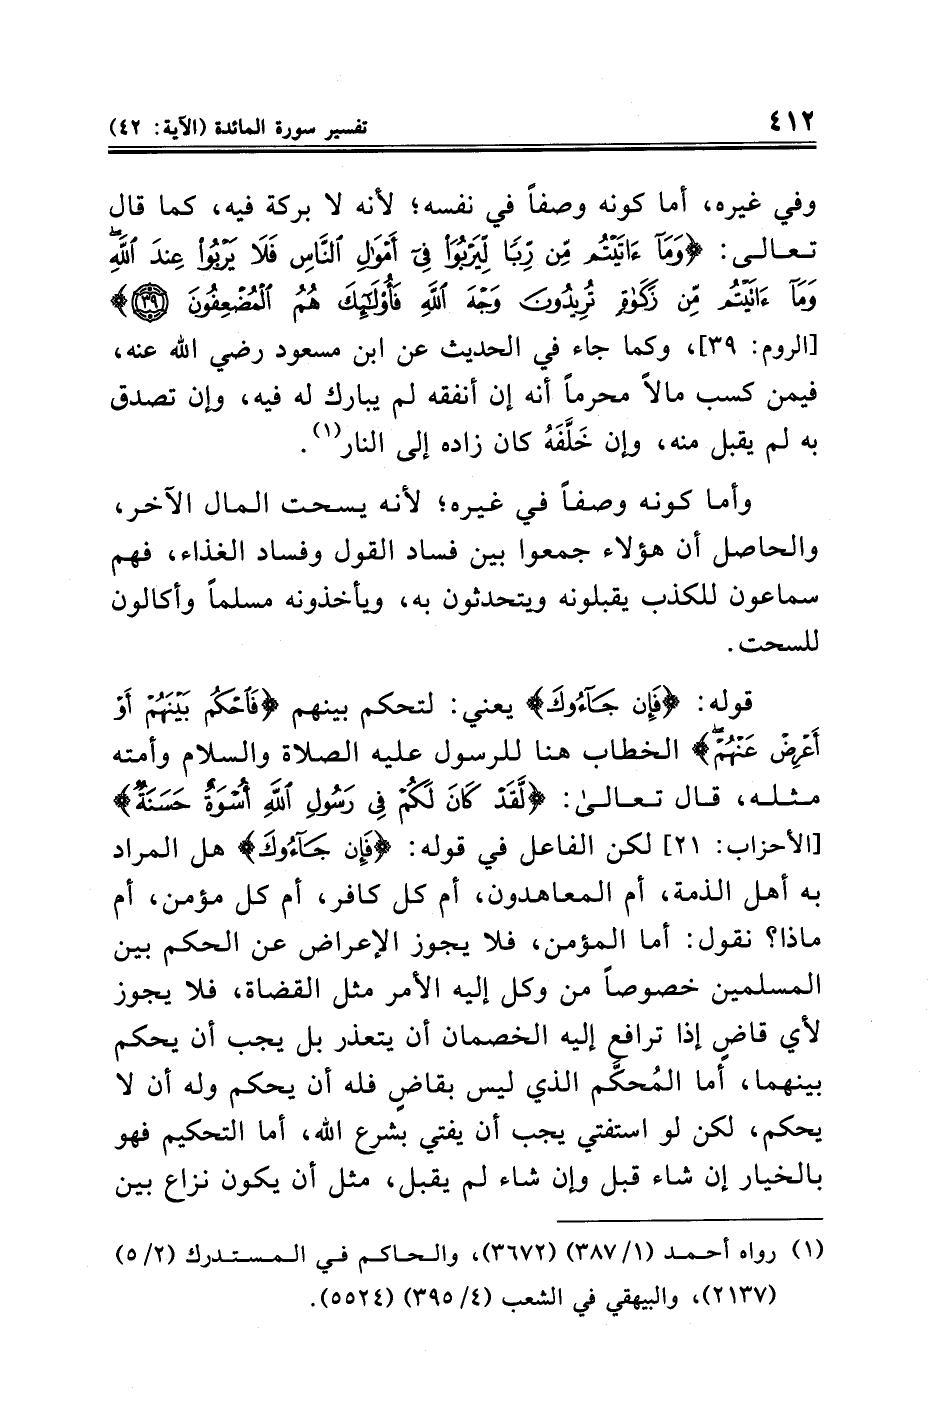 ٤١٢ تفسير سورة المائدة (الآية: ٤٢)
وفي غيره، أما كونه وصفاً في نفسه؛ لأنه لا بركة فيه، كما قال
تعالى: ﴿وَمَآ ءَاتَيْتُم مِّن رِّبًا لِّيَرْبُوَا۟ فِىٓ أَمْوَٰلِ ٱلنَّاسِ فَلَا يَرْبُوا۟ عِندَ ٱللَّهِۖ
وَمَآ ءَاتَيْتُم مِّن زَكَوٰةٍ تُرِيدُونَ وَجْهَ ٱللَّهِ فَأُو۟لَٰٓئِكَ هُمُ ٱلْمُضْعِفُونَ ٣٩﴾
[الروم: ٣٩]، وكما جاء في الحديث عن ابن مسعود رضي الله عنه،
فيمن كسب مالاً محرماً أنه إن أنفقه لم يبارك له فيه، وإن تصدق
به لم يقبل منه، وإن خَلَّفَهُ كان زاده إلى النار(١).
وأما كونه وصفاً في غيره؛ لأنه يسحت المال الآخر،
والحاصل أن هؤلاء جمعوا بين فساد القول وفساد الغذاء، فهم
سماعون للكذب يقبلونه ويتحدثون به، ويأخذونه مسلماً وأكالون
للسحت.
قوله: ﴿فَإِن جَآءُوكَ﴾ يعني: لتحكم بينهم ﴿فَٱحْكُم بَيْنَهُمْ أَوْ
أَعْرِضْ عَنْهُمْۖ﴾ الخطاب هنا للرسول عليه الصلاة والسلام وأمته
مثله، قال تعالىٰ: ﴿لَّقَدْ كَانَ لَكُمْ فِى رَسُولِ ٱللَّهِ أُسْوَةٌ حَسَنَةٌ﴾
[الأحزاب: ٢١] لكن الفاعل في قوله: ﴿فَإِن جَآءُوكَ﴾ هل المراد
به أهل الذمة، أم المعاهدون، أم كل كافر، أم كل مؤمن، أم
ماذا؟ نقول: أما المؤمن، فلا يجوز الإعراض عن الحكم بين
المسلمين خصوصاً من وكل إليه الأمر مثل القضاة، فلا يجوز
لأي قاضٍ إذا ترافع إليه الخصمان أن يتعذر بل يجب أن يحكم
بينهما، أما المُحكَّم الذي ليس بقاضٍ فله أن يحكم وله أن لا
يحكم، لكن لو استفتي يجب أن يفتي بشرع الله، أما التحكيم فهو
بالخيار إن شاء قبل وإن شاء لم يقبل، مثل أن يكون نزاع بين
(١) رواه أحمد (١/ ٣٨٧) (٣٦٧٢)، والحاكم في المستدرك (٢/ ٥)
(٢١٣٧)، والبيهقي في الشعب (٤/ ٣٩٥) (٥٥٢٤).